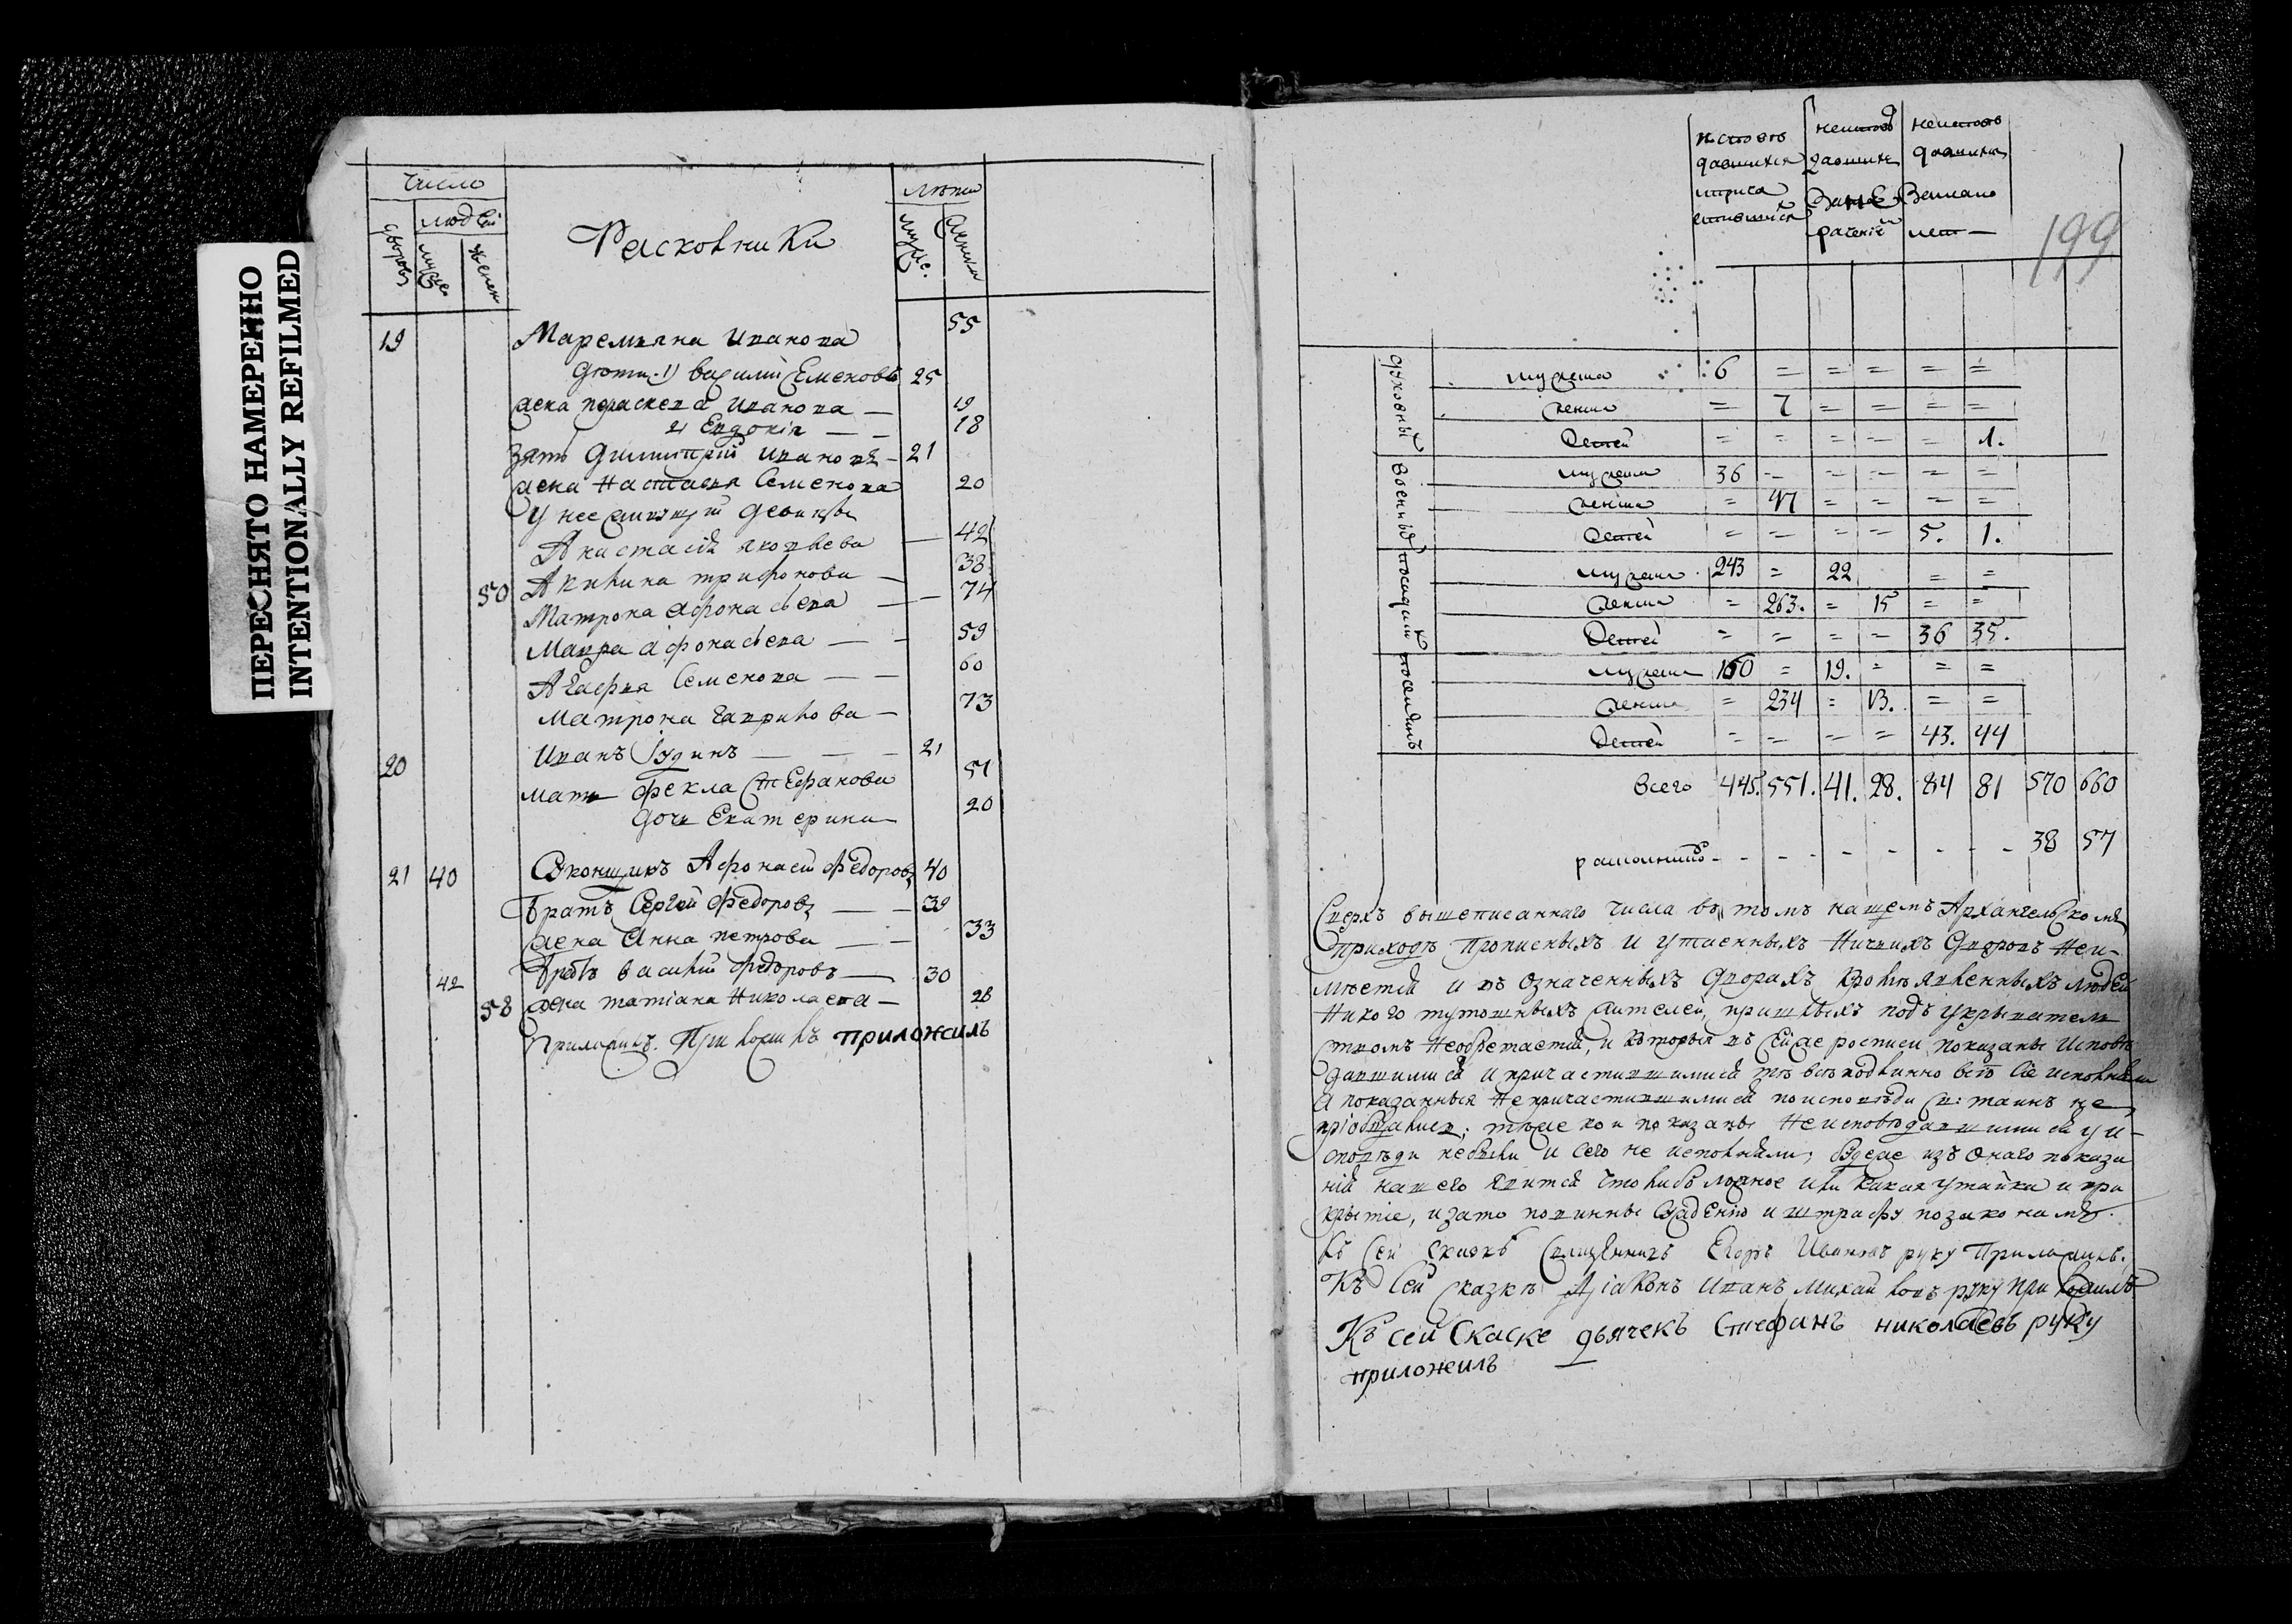 ПЕРЕСНЯТО НАМЕРЕННО
INTENTIONALLY REFILMED
Число
людей
дворовъ
муже
женск
Расколники
лѣта
муже.
женска
19 Маремьяна Иванова 55
дѣти. 1) василий Семеновъ 25
жена параскева Иванова — 19
2) Евдокія — — 18
Зять Димитрий Ивановъ — 21
жена Настасья Семенова 20
У нее живущий девицы
Анастасія яковлева — 42
50 Акилина трифонова — 38
Матрона афонасьева — — 74
Мавра афонасьева — — 59
Агафья Семенова — — 60
Матрона гаврилова — 73
20 Иванъ Юдинъ — — — 21
мать Фекла Стефанова 51
дочь Екатерина 20
21 40 Афонасей Федоровъ 40
Братъ Сергей Федоровъ — — 39
жена Анна петрова — — 33
42 Братъ василий Федоровъ — 30
58 жена татіана Николаева — 28
приложилъ
199
исповѣ
давшихся
иприча
стившихся
неисповѣ
давшихъ
рачені
неисповѣ
давших
Замало
лет —
духовныхъ
мужеска 6 = = = = =
женска = 7 = = = =
детей = = = = = 1.
военныхъ
мужеска 36 = = = = =
женска = 47 = = = =
детей = = = = 5. 1.
посадцких
мужеска 243 = 22 = =
женска = 263. = 15 = =
детей = = = = 36 35.
поселянъ
мужеска 160 = 19. = = =
женска = 234 = 13. = =
детей = = = = 43. 44
Всего 445. 551. 41. 28. 84 81 570 660
- - - - - - - 38 57
Сверхъ вышеписаннаго числа въ томъ нашемъ Архангельскомъ
приходѣ прописныхъ и утаенныхъ ничьихъ дворовъ неи-
мѣется и въ означенныхъ дворахъ кромѣ явленныхъ людей
никого тутошныхъ жителей, пришлыхъ подъ укрывателъ
ствомъ необретается, и которыя въ сей же росписи показаны исповѣ
давшимися и причастившимися тѣ всѣ подлинно всѣ Сіе исполнили
а показанныя непричастившимися по исповѣди св: таинъ не
пріобщались; тѣже кои показаны неисповѣдавшимися у и-
споведи небыли и сего не исполняли; Ежели изъ онаго показа
нія нашего явится что либо ложное или какая утайка и при
крытіе, изато повинны суждению и штрафу по законамъ.
Къ сей скаскѣ священникъ Егоръ Ивановъ руку приложилъ.
Къ сей сказкѣ Діаконъ Иванъ Михайловъ руку приложилъ
Къ сей Скаске дьячекъ Стефанъ николаевъ руку
приложилъ